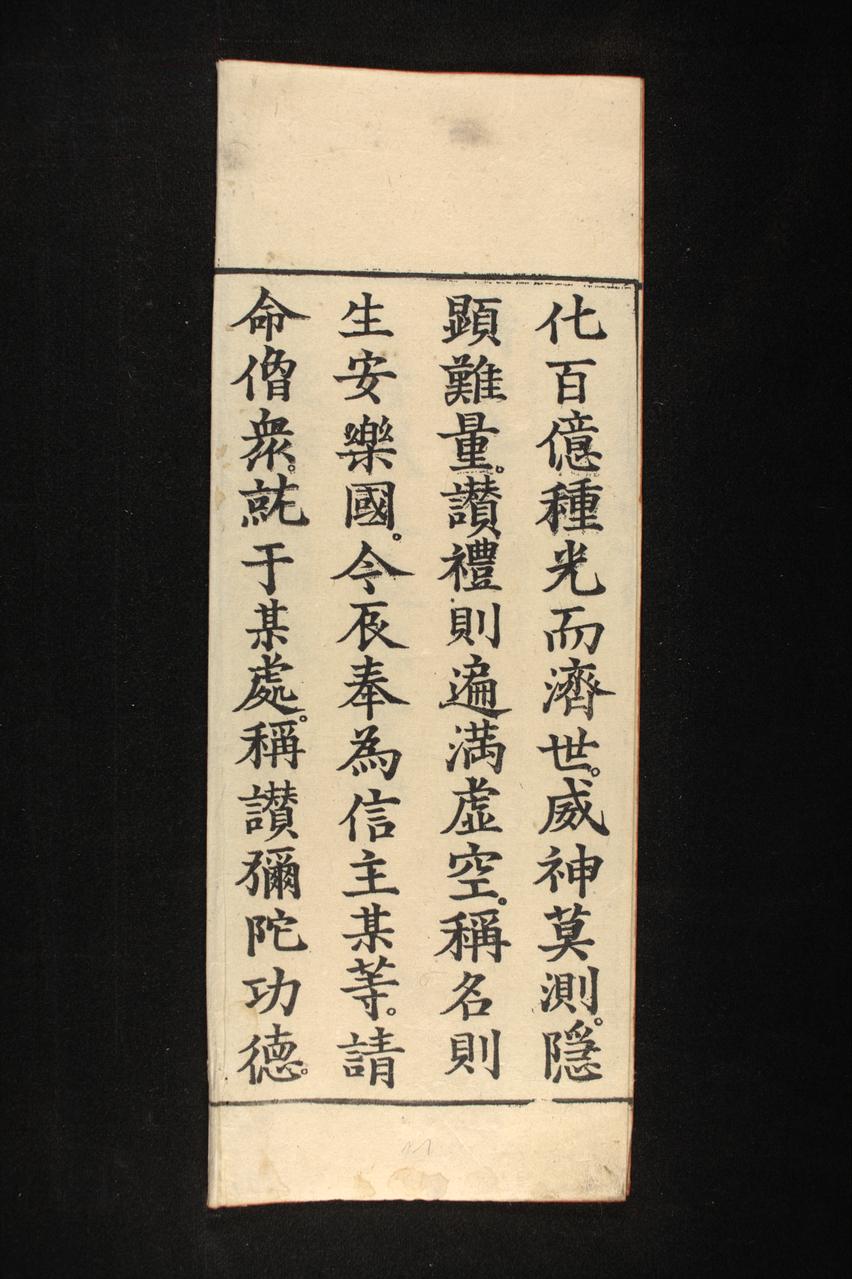 化百億種光而濟世。威神莫測。隱
顯難量。讚禮則遍滿虛空。稱名則
生安樂國。今辰奉為信主某等。請
命僧衆。就于某處。稱讚彌陀功德。